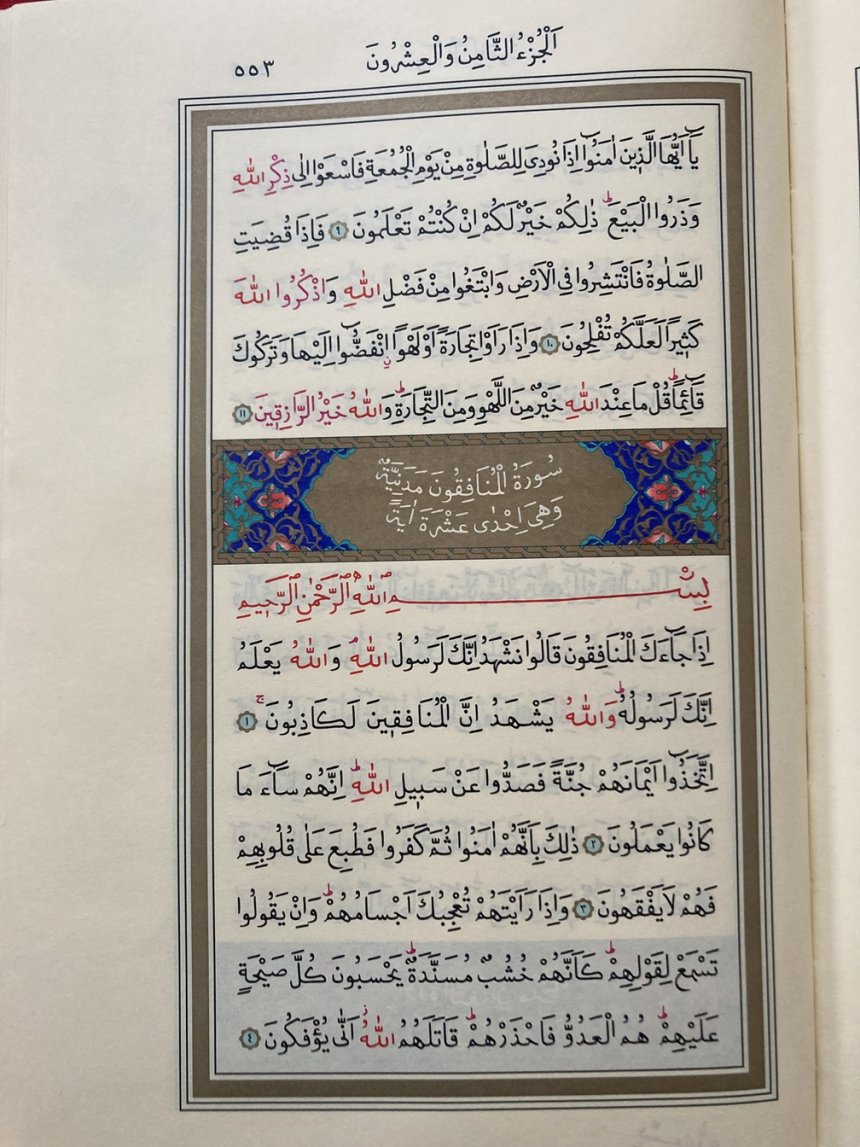 اَلْجُزْءُ الثَّامِنُ وَالْعِشْرُونَ
٥٥٣
يَٓا اَيُّهَا الَّذٖينَ اٰمَنُٓوا اِذَا نُودِىَ لِلصَّلٰوةِ مِنْ يَوْمِ الْجُمُعَةِ فَاسْعَوْا اِلٰى ذِكْرِ اللّٰهِ
وَذَرُوا الْبَيْعَؕ ذٰلِكُمْ خَيْرٌ لَكُمْ اِنْ كُنْتُمْ تَعْلَمُونَ ﴿٩﴾ فَاِذَا قُضِيَتِ
الصَّلٰوةُ فَانْتَشِرُوا فِى الْاَرْضِ وَابْتَغُوا مِنْ فَضْلِ اللّٰهِ وَاذْكُرُوا اللّٰهَ
كَثٖيرًا لَعَلَّكُمْ تُفْلِحُونَ ﴿١٠﴾ وَاِذَا رَاَوْا تِجَارَةً اَوْ لَهْوًاۨ انْفَضُّٓوا اِلَيْهَا وَتَرَكُوكَ
قَٓائِمًاؕ قُلْ مَا عِنْدَ اللّٰهِ خَيْرٌ مِنَ اللَّهْوِ وَمِنَ التِّجَارَةِؕ وَاللّٰهُ خَيْرُ الرَّازِقٖينَ ﴿١١﴾
سُورَةُ الْمُنَافِقُونَ مَدَنِيَّةٌ
وَهِىَ اِحْدٰى عَشْرَةَ اٰيَةً
بِسْمِ اللّٰهِ الرَّحْمٰنِ الرَّحٖيمِ
اِذَا جَٓاءَكَ الْمُنَافِقُونَ قَالُوا نَشْهَدُ اِنَّكَ لَرَسُولُ اللّٰهِۘ وَاللّٰهُ يَعْلَمُ
اِنَّكَ لَرَسُولُهُؕ وَاللّٰهُ يَشْهَدُ اِنَّ الْمُنَافِقٖينَ لَكَاذِبُونَۚ ﴿١﴾
اِتَّخَذُٓوا اَيْمَانَهُمْ جُنَّةً فَصَدُّوا عَنْ سَبٖيلِ اللّٰهِؕ اِنَّهُمْ سَٓاءَ مَا
كَانُوا يَعْمَلُونَ ﴿٢﴾ ذٰلِكَ بِاَنَّهُمْ اٰمَنُوا ثُمَّ كَفَرُوا فَطُبِعَ عَلٰى قُلُوبِهِمْ
فَهُمْ لَا يَفْقَهُونَ ﴿٣﴾ وَاِذَا رَاَيْتَهُمْ تُعْجِبُكَ اَجْسَامُهُمْؕ وَاِنْ يَقُولُوا
تَسْمَعْ لِقَوْلِهِمْؕ كَاَنَّهُمْ خُشُبٌ مُسَنَّدَةٌؕ يَحْسَبُونَ كُلَّ صَيْحَةٍ
عَلَيْهِمْؕ هُمُ الْعَدُوُّ فَاحْذَرْهُمْؕ قَاتَلَهُمُ اللّٰهُؗ اَنّٰى يُؤْفَكُونَ ﴿٤﴾